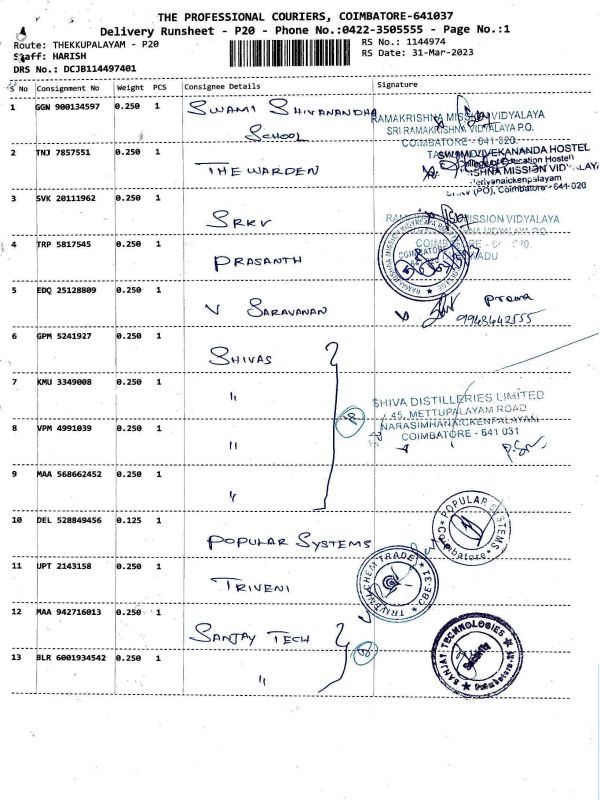 THE PROFESSIONAL COURIERS, COIMBATORE-641037
Delivery Runsheet - P20 - Phone No.:0422-3505555 - Page No.:1
Route: THEKKUPALAYAM - P20 RS No.: 1144974
Staff: HARISH RS Date: 31-Mar-2023
DRS No.: DCJB114497401
S No Consignment No Weight PCS Consignee Details Signature
1 GGN 900134597 0.250 1 SWAMI SHIVANANDHA
SCHOOL
RAMAKRISHNA MISSION VIDYALAYA
SRI RAMAKRISHNA VIDYALAYA P.O.
COIMBATORE - 641 020.
2 TNJ 7857551 0.250 1 THE WARDEN
SWAMI VIVEKANANDA HOSTEL
Periyanaickenpalayam
SRKV (PO), Coimbatore - 641 020
3 SVK 20111962 0.250 1 SRKV
MISSION VIDYALAYA
4 TRP 5817545 0.250 1 PRASANTH
5 EDQ 25128809 0.250 1 V SARAVANAN
9948442555
6 GPM 5241927 0.250 1 SHIVAS
7 KMU 3349008 0.250 1 "
SHIVA DISTILLERIES LIMITED
45, METTUPALAYAM ROAD
NARASIMHANAICKENPALAYAM
COIMBATORE - 641 031
8 VPM 4991039 0.250 1 "
9 MAA 568662452 0.250 1 "
10 DEL 528849456 0.125 1 POPULAR SYSTEMS
POPULAR SYSTEMS
Coimbatore
11 UPT 2143158 0.250 1 TRIVENI
TRIVENI CHEM TRADE
CBE-31
12 MAA 942716013 0.250 1 SANJAY TECH
SANJAY TECHNOLOGIES
Security
13 BLR 6001934542 0.250 1 "